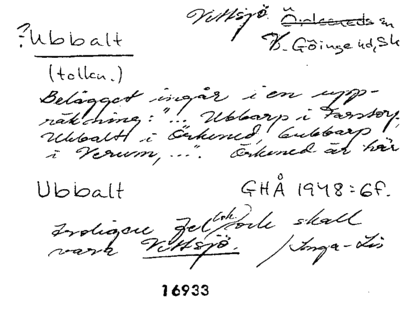 Vittsjö Örkeneds sn
?Ubbalt V. Göinge hd, Sk
(tolkn.)
Belägget ingår i en upp-
räkning: "... Ubbarp i Farstorp,
Ubbalt i Örkened, Gubbarp
i Verum, ...". Örkened är här
Ubbalt GHÅ 1948:6f.
troligen fel sock skall
vara Vittsjö. /Inga-Lis
16933